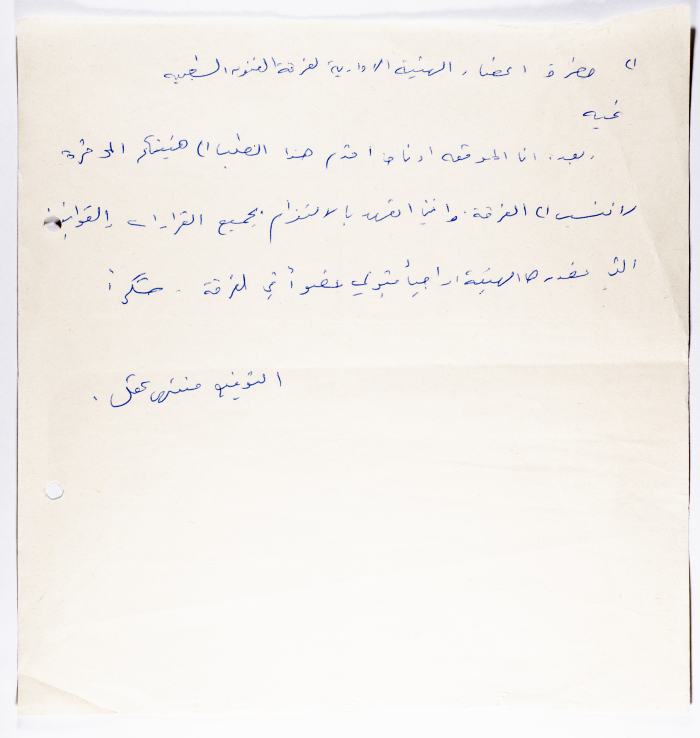 الى حضرة اعضاء الهيئة الادارية لفرقة الفنون الشعبيه
تحيه
وبعد، انا الموقعه ادناه اقدم هذا الطلب الى هيئتكم الموقرة
لانتسب الى الفرقة. وانني اتعهد بالالتزام بجميع القرارات والقوانين
التي تصدرها الهيئة راجيأ قبولي عضوأ في الفرقة. شكرأ
التوقيع منتهى عقل.